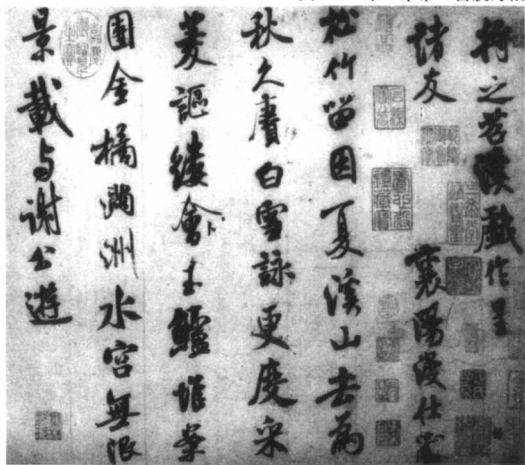 將之苕溪戲作呈
諸友 襄陽漫仕黻
松竹留因夏溪山去為
秋久賡白雪詠更度采
菱謳縷會玉鱸堆案
團金橘滿洲水宮無限
景載与謝公遊